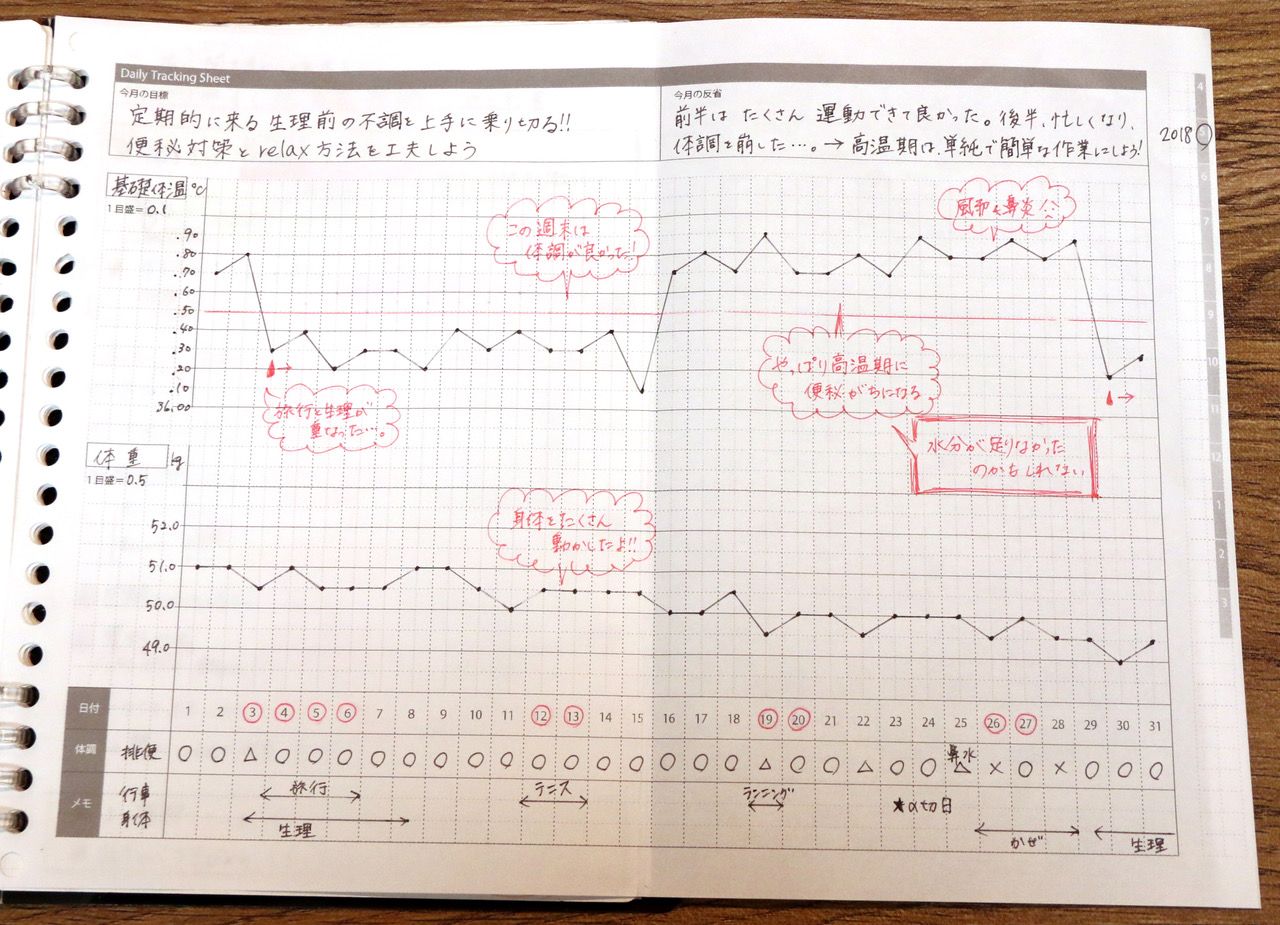 Daily Tracking Sheet
今月の目標
定期的に来る 生理前の不調を上手に乗り切る!!
便秘対策とrelax方法を工夫しよう
今月の反省
前半は たくさん 運動できて良かった。後半、忙しくなり、
体調を崩した…。→ 高温期は、単純で簡単な作業にしよう!
2018
4
5
6
7
8
9
10
11
12
1
2
3
基礎体温 ℃
1目盛=0.1
.90
.80
.70
.60
.50
.40
.30
.20
.10
36.00
この週末は
体調が良かった!
風邪&鼻炎
旅行と生理が
重なった…。
やっぱり高温期に
便秘がちになる
水分が足りなかった
のかもしれない
体重 kg
1目盛=0.5
52.0
51.0
50.0
49.0
身体をたくさん
動かしたよ!!
日付 1 2 3 4 5 6 7 8 9 10 11 12 13 14 15 16 17 18 19 20 21 22 23 24 25 26 27 28 29 30 31
体調 排便 ○ ○ △ ○ ○ ○ ○ ○ ○ ○ ○ ○ ○ ○ ○ ○ ○ ○ △ ○ ○ △ ○ ○ △ × ○ × ○ ○ ○
鼻水
メモ
行事 旅行 テニス ランニング ★〆切日
身体 生理 かぜ 生理